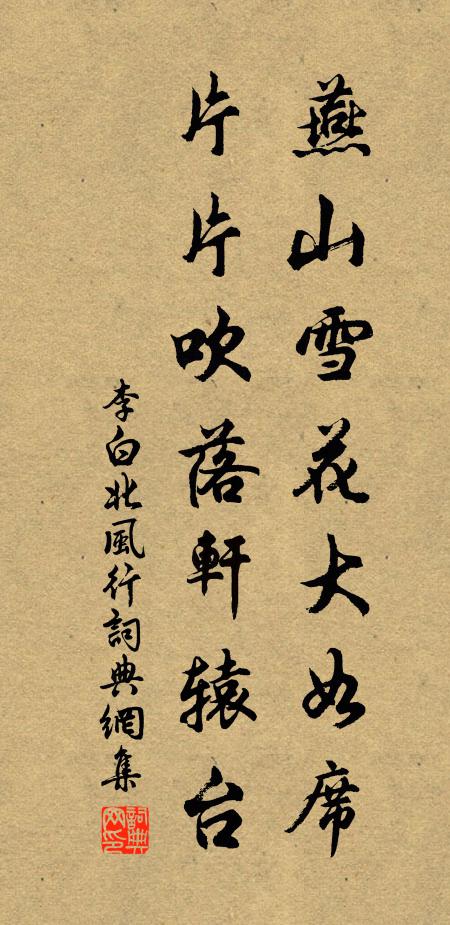 燕山雪花大如席
片片吹落軒辕台
李白北風行詞典網集
詞典网印